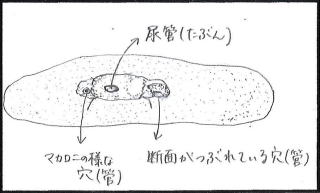 尿管(たぶん)
マカロニの様な
穴(管)
断面がつぶれている穴(管)